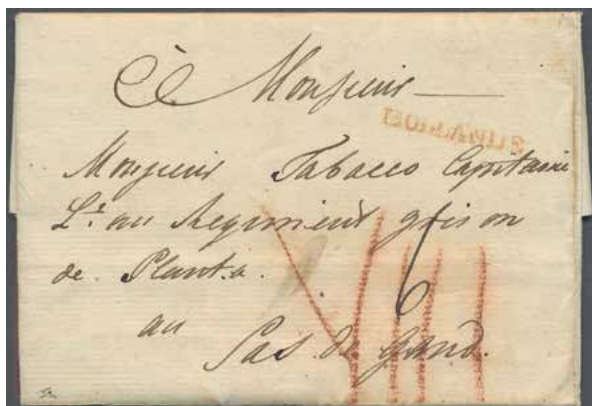 À Monsieur
HOLLANDE
Monsieur Tabacco Capitaine
Lt. au Regiment grison
de Planta.
au
Sas de Gand.
6
VIII